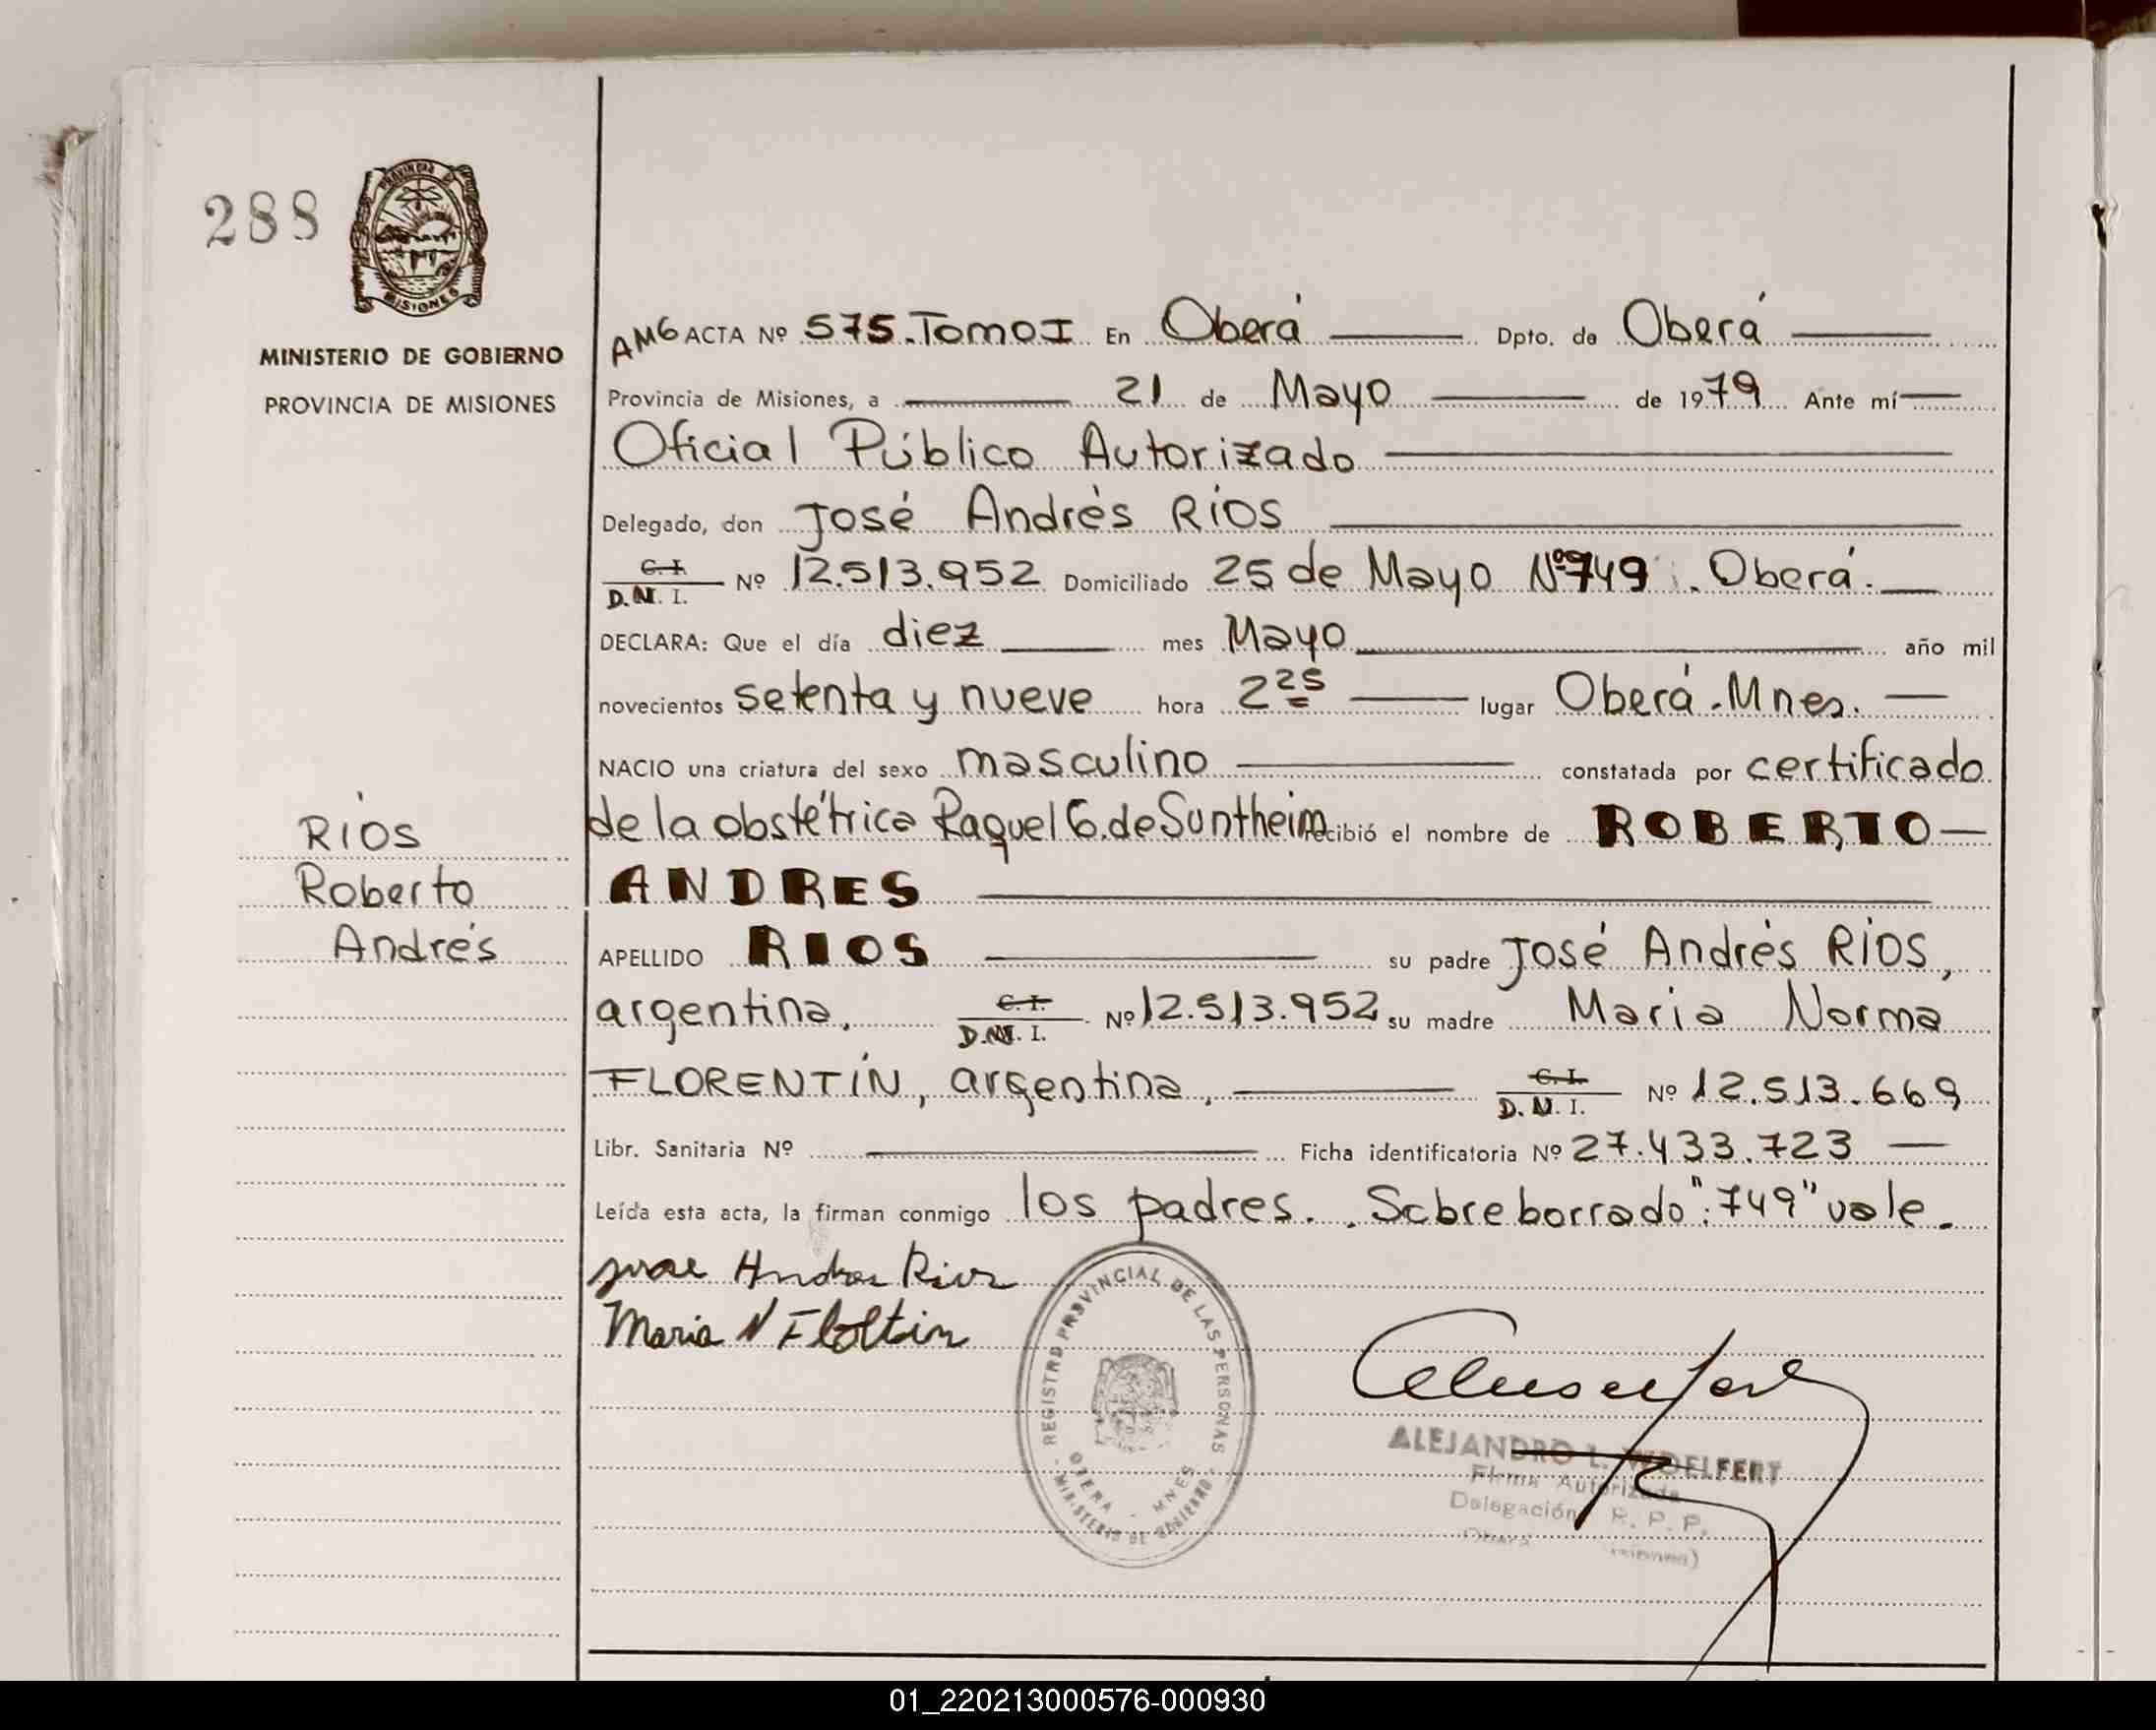 288
PROVINCIA DE
MISIONES
MINISTERIO DE GOBIERNO
PROVINCIA DE MISIONES
RÍOS
Roberto
Andrés
AMG ACTA Nº 575.Tomo I En Oberá Dpto. de Oberá
Provincia de Misiones, a 21 de Mayo de 1979 Ante mí
Oficial Público Autorizado
Delegado, don José Andrés RÍOS
C.I. D.N.I. Nº 12.513.952 Domiciliado 25 de Mayo Nº749. Oberá.
DECLARA: Que el día diez mes Mayo año mil
novecientos setenta y nueve hora 2 25 lugar Oberá.Mnes.
NACIO una criatura del sexo masculino constatada por certificado
de la obstétrica Raquel G. de Suntheim recibió el nombre de ROBERTO
ANDRES
APELLIDO RIOS su padre José Andrés RÍOS,
argentina. C.I. D.N.I. Nº 12.513.952 su madre Maria Norma
FLORENTÍN, argentina, C.I. D.N.I. Nº 12.513.669
Libr. Sanitaria Nº Ficha identificatoria Nº 27.433.723
Leída esta acta, la firman conmigo los padres. Sobre borrado: "749" vale.
Jose Andres Rios
Maria N
REGISTRO PROVINCIAL DE LAS PERSONAS
OBERA - MNES
MINISTERIO DE GOBIERNO
ALEJANDRO L. WOELFERT
Firma Autorizada
Delegación R. P. P.
Oberá (Misiones)
01_220213000576-000930